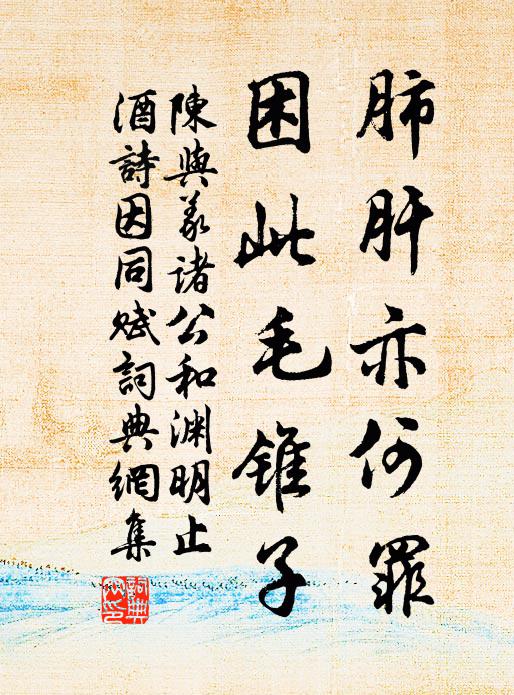 肺肝亦何罪
困此毛錐子
陳與義諸公和渊明止
酒詩因同賦詞典網集